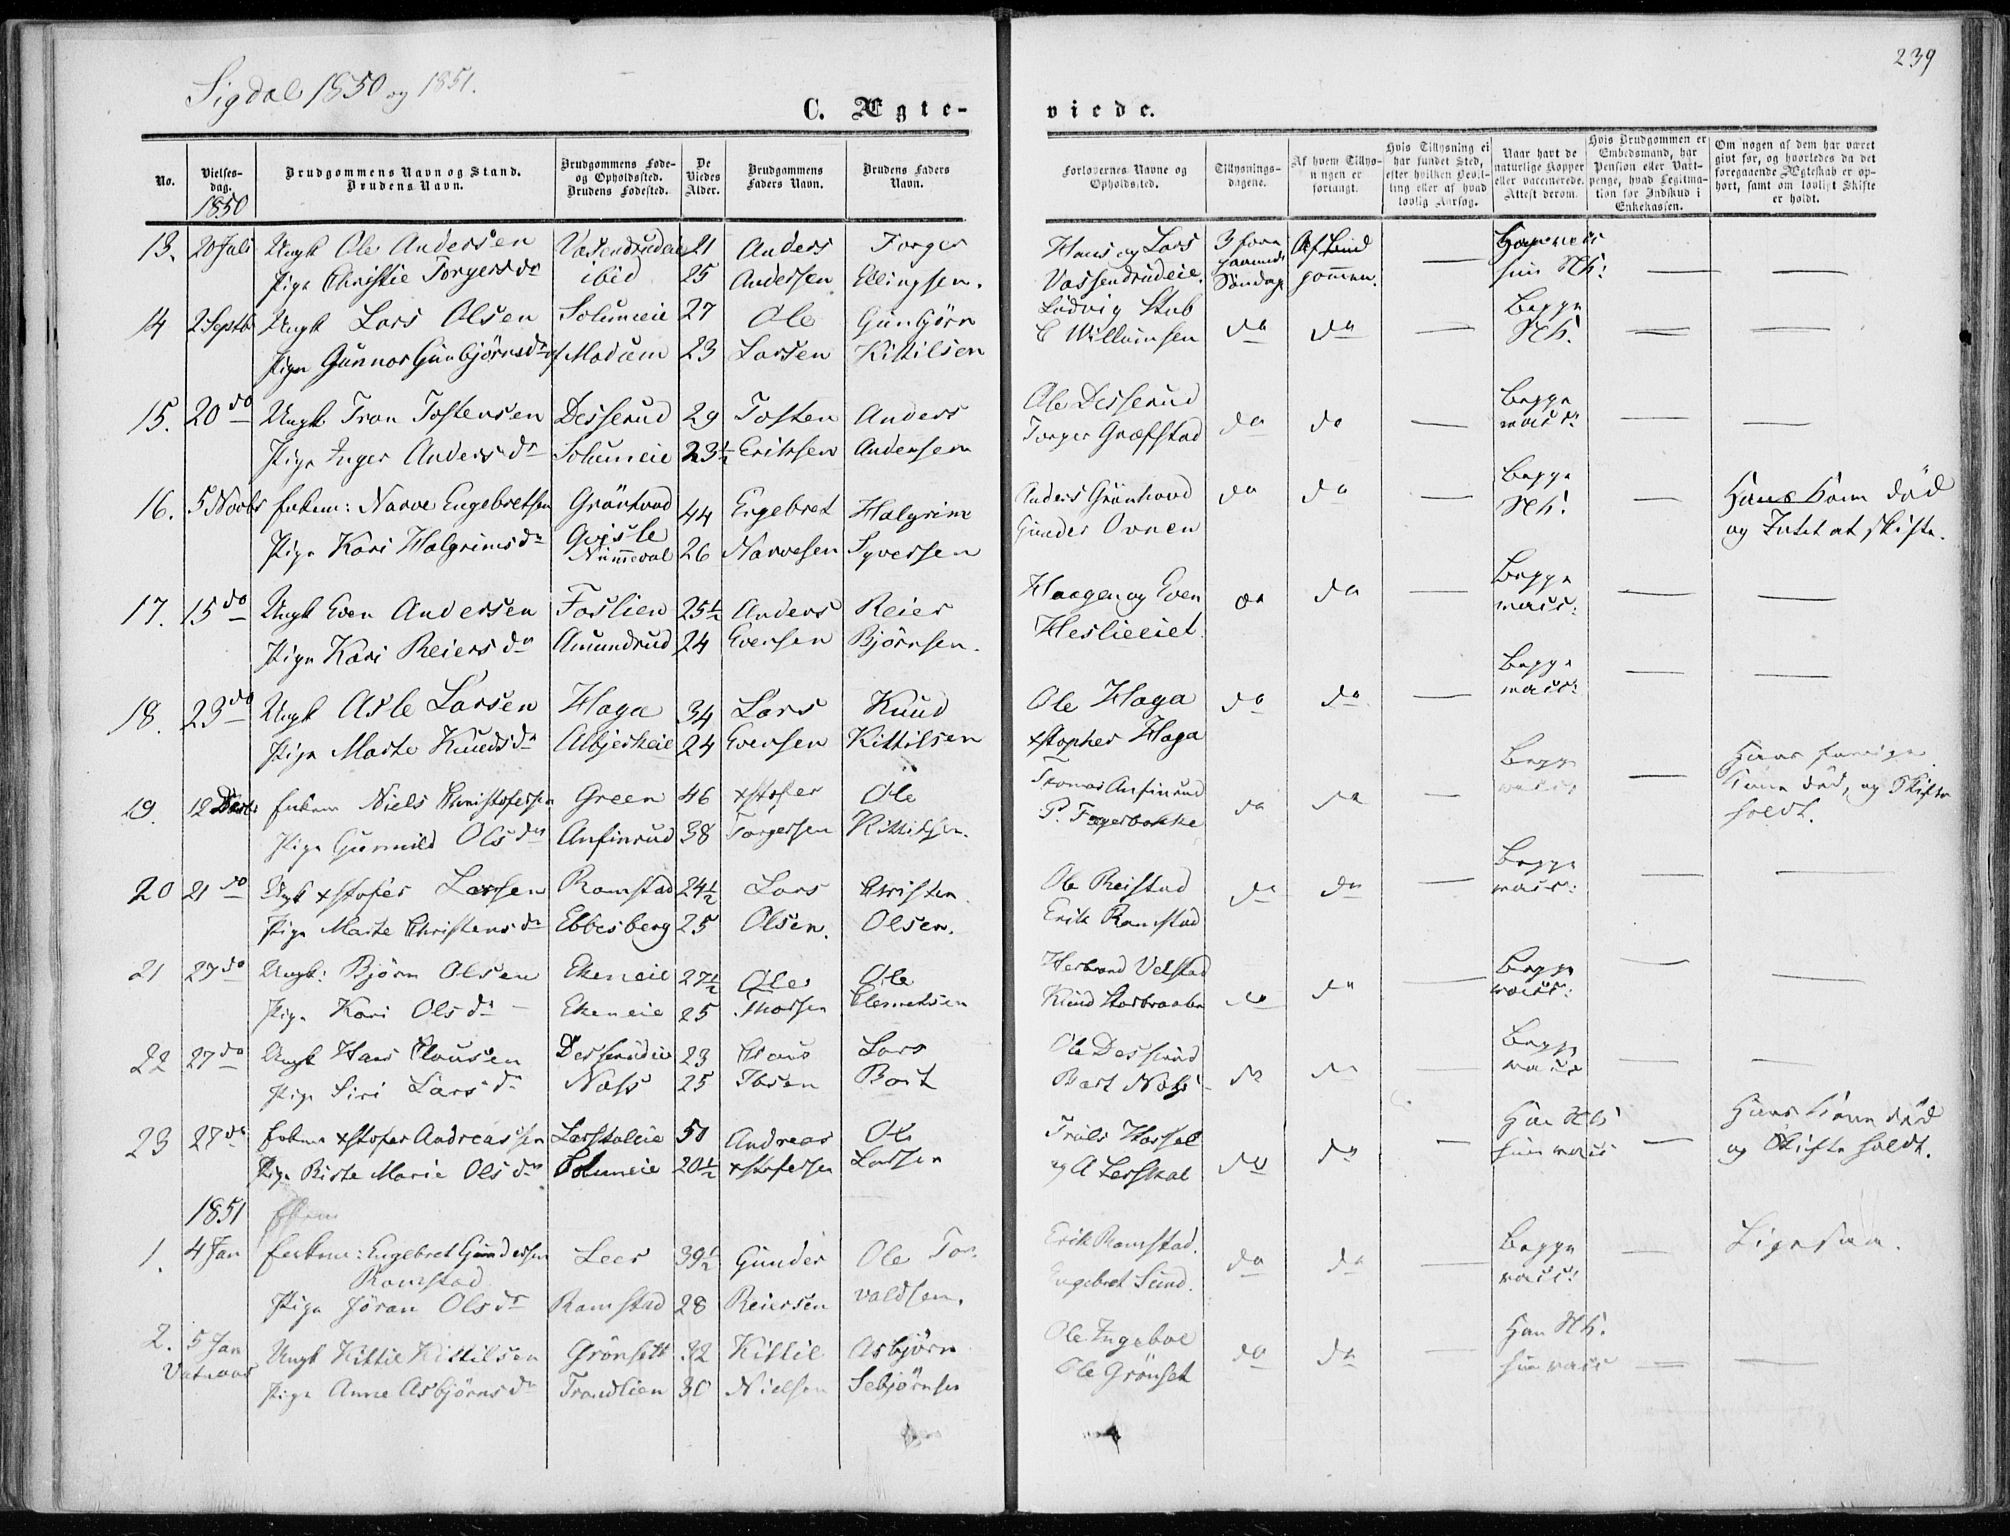 239
Sigdal 1850 og 1851.
C. Ægte-
viede.
No.
Vielses-dag.
Brudgommens Navn og Stand. Brudens Navn.
Brudgommens Føde- og Opholdssted. Brudens Fødested.
De Viedes Alder.
Brudgommens Faders Navn.
Brudens Faders Navn.
Forlovernes Navne og Opholdssted.
Tillysnings-dagene.
Af hvem Tillysningen er forlangt.
Hvis Tillysning ei har fundet Sted, efter hvilken Bevilling eller af hvad lovlig Aarsag.
Naar havt de naturlige Kopper eller vaccinerede. Attest derom.
Hvis Brudgommen er Embedsmand, har Pension eller Vartpenge, hvad Legitimation for Indskud i Enkekassen.
Om nogen af dem har været givt før, og hvorledes da det foregaaende Ægteskab er ophørt, samt om lovligt Skifte er holdt.
1850
13. 20 Juli Ungk Ole Andersen Vasendrudeie 21 Anders Torger Hans og Lars 3 Af Brud —
Pige Christie Torgersdr ibid 25 Andersen Ellingsen. Vassendrudeie. Søndage gommen. — —
14 2 Septb Ungk Lars Olsen Solumeie 27 Ole Gunbjørn Ludvig Stub do do — Begge — —
Pige Gunnor Gunbjørnsdr af Modum 23 Larsen Kittilsen C Willumsen
15. 20 do Ungk Tron Tostensen Desserud 29 Tosten Anders Ole Desserud do do — Begge — —
Pige Inger Andersdr Solumeie 23½ Eriksen Andersen Torger Græfstad
16. 5 Novbr Enkem: Narve Engebretsen Grønhovd 44 Engebret Halgrim Anders Grønhovd do do — Begge — Hans Kone død
Pige Kari Halgrimsdr Nummedal 26 Narvesen Syversen Gunder Ovnen og Intet at skifte.
17. 15 do Ungk Even Andersen Foslien 25½ Anders Reier Haagen og Even do do — Begge — —
Pige Kari Reiersdr Amundrud 24 Evensen Bjørnsen. Heslieeiet. vacc:
18. 23 do Ungk Asle Larsen Haga 34 Lars Knud Ole Haga do do — Begge — —
Pige Marte Knudsdr Albjerkeie 24 Eversen Kittilsen xstopher Haga vacc:
19. 12 Decbr Enkem Niels Christofersen Green 46 xstofer Ole Tromas Anfinrud do do — Begge — Hans forrige
Pige Gunnild Olsdr Anfinrud 38 Torgersen Kittilsen. P. Fagerbakke vacc: Kone død, og Skifte
holdt.
20 21 do Ungk xstofer Larsen Ramstad 24½ Lars Christen Ole Reistad do do — Begge — —
Pige Marte Christensdr Ebbesberg 25 Olsen. Olsen. Erik Ramstad vacc:
21 27 do Ungk: Bjørn Olsen Ekeneie 27½ Ole Ole Herbrand Velstad do do — Begge — —
Pige Kari Olsdr Ekeneie 25 Thorsen Clemetsen Knud Storbraaten vacc:
22 27 do Ungk Hans Clausen Desserudeie 23 Claus Lars Ole Desserud do do — Begge — —
Pige Siri Larsdr Nass 25 Ibsen Bart Bart Nass vacc
23 27 do Enkem xstofer Andreassen Lerskaleie 50 Andreas Ole Truls Horsal do do — Han — Hans Kone død
Pige Birte Marie Olsdr Solumeie 20½ xstofersen Larsen og A Lerskal hun vacc og Skifte holdt.
1851
1. 4 Jan Enkem: Engebret Gundersen Lees 39½ Gunder Ole Tor- Erik Ramstad. do do — Begge — Ligesaa.
Ramstad
Pige Jøran Olsdr Ramstad 28 Reiersen valdsen. Engebret Lund. vacc:
2. 5 Jan Ungk Kittil Kittilsen Grønsett 32 Kittil Asbjørn Ole Ingebve do do — Han — —
Vatnaas Pige Anne Asbjørnsdr Trondlien 30 Nielsen Sebjørnsen Ole Grønset hun vacc